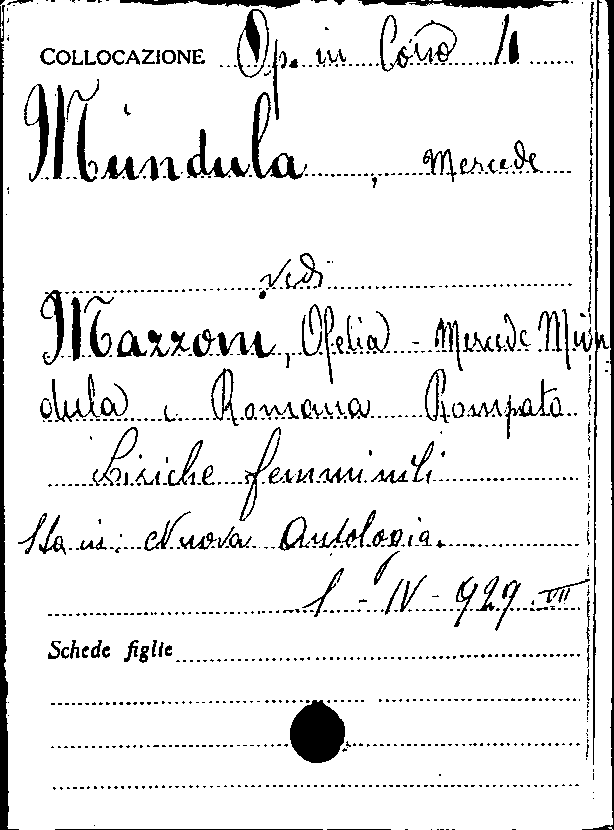 COLLOCAZIONE Op. in Corso 11
Mundula, Mercede
vedi
Mazzoni, Ofelia - Mercede Mun
dula e Romana Rompato
Liriche femminili
Sta in: Nuova Antologia.
1 - IV - 929. VII
Schede figlie